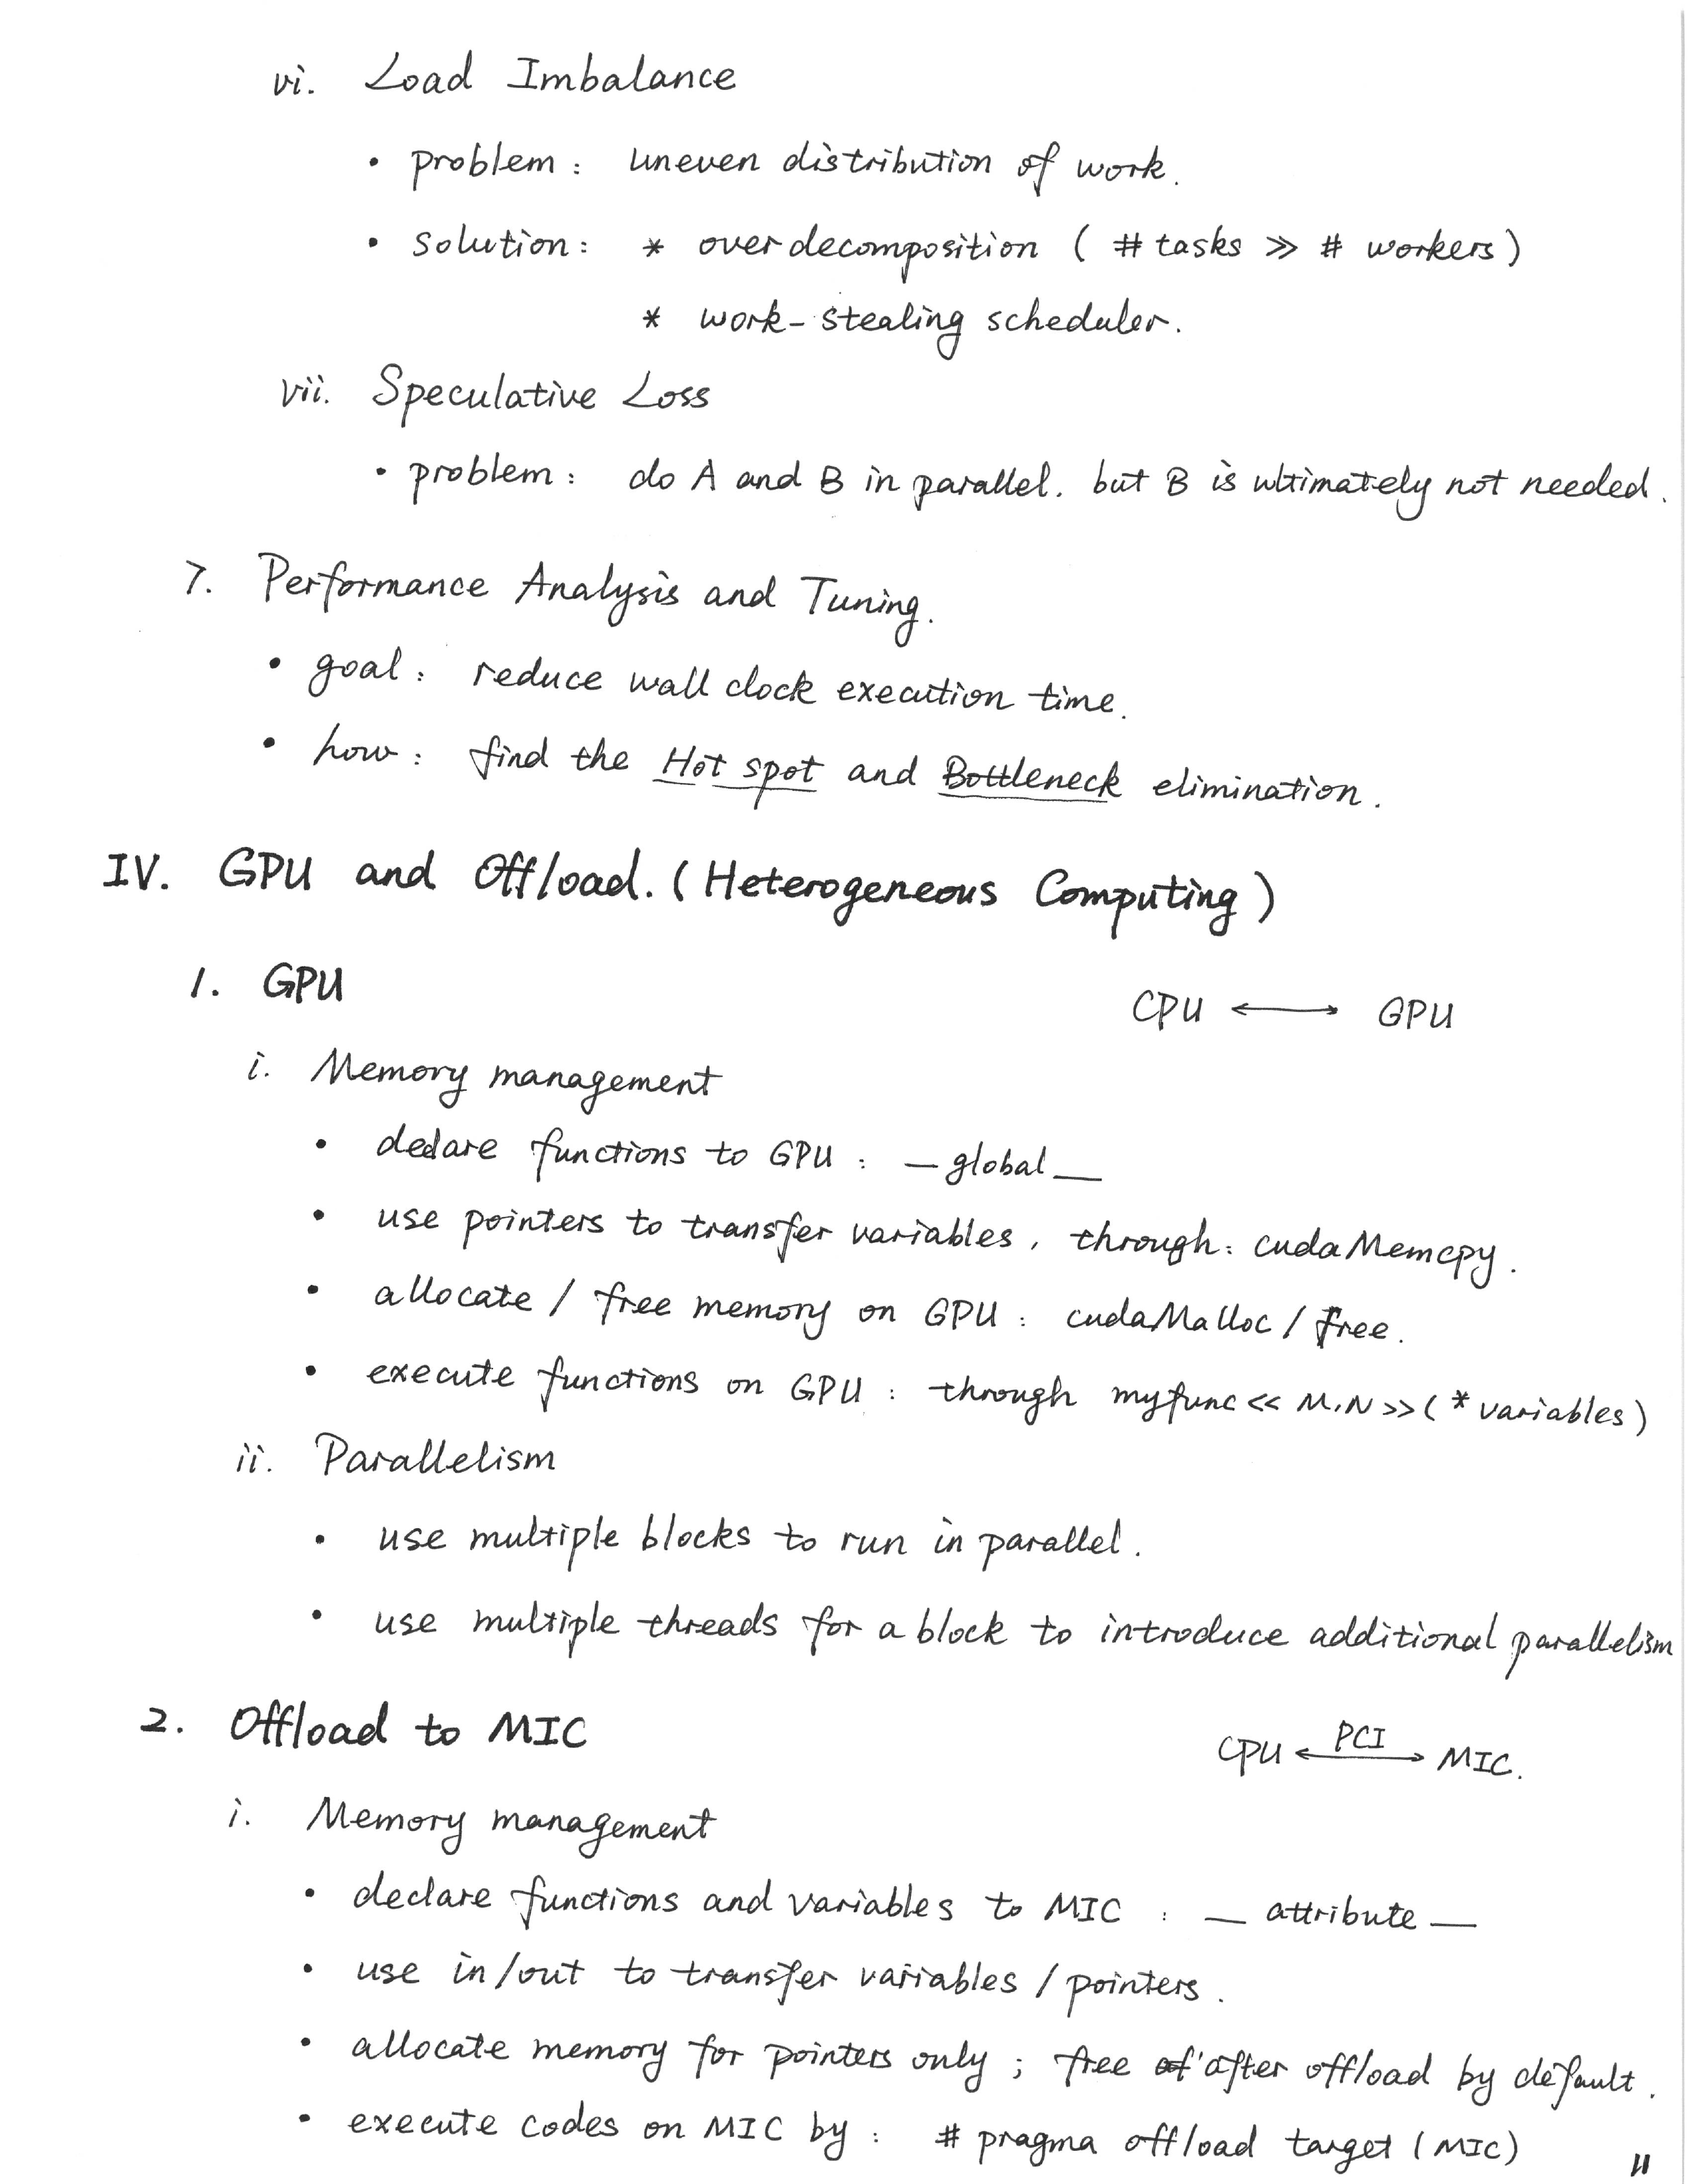 vi. Load Imbalance
• problem: uneven distribution of work.
• solution: * over decomposition ( # tasks >> # workers )
* work-stealing scheduler.
vii. Speculative Loss
• problem: do A and B in parallel. but B is ultimately not needed.
7. Performance Analysis and Tuning.
• goal: reduce wall clock execution time.
• how: find the Hot spot and Bottleneck elimination.
IV. GPU and Offload. (Heterogeneous Computing)
1. GPU
CPU ⟷ GPU
i. Memory management
• declare functions to GPU: _global_
• use pointers to transfer variables, through: cudaMemcpy.
• allocate / free memory on GPU: cudaMalloc / free.
• execute functions on GPU: through myfunc << M,N >> ( * variables )
ii. Parallelism
• use multiple blocks to run in parallel.
• use multiple threads for a block to introduce additional parallelism
2. Offload to MIC
PCI
CPU ⟷ MIC.
i. Memory management
• declare functions and variables to MIC: _ attribute _
• use in/out to transfer variables / pointers.
• allocate memory for pointers only; free after offload by default.
• execute codes on MIC by: # pragma offload target (MIC)
11